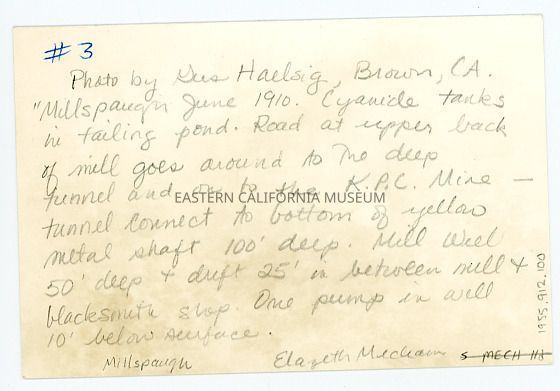 #3
Photo by Gus Haelsig, Brown, CA.
"Millspaugh June 1910. Cyanide tanks
in tailing pond. Road at upper back
of mill goes around to the deep
tunnel and on to the K.P.C. Mine —
EASTERN CALIFORNIA MUSEUM
tunnel connect to bottom of yellow
metal shaft 100' deep. Mill Well
50' deep + drift 25' in between mill +
blacksmith shop. One pump in well
10' below surface.
Millspaugh
Mecham
MECH
1955.912.100